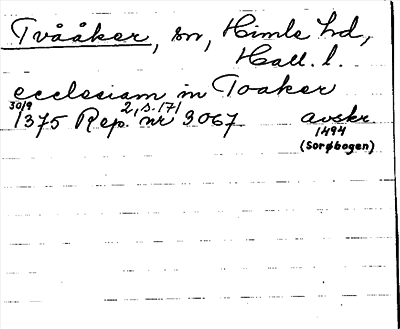 Tvååker, sn, Himle hd,
Hall. l.
ecclesiam in Toaker
30/9 1375 Rep. 2, s. 171 nr 3067 avskr
1494
(Sorøbogen)